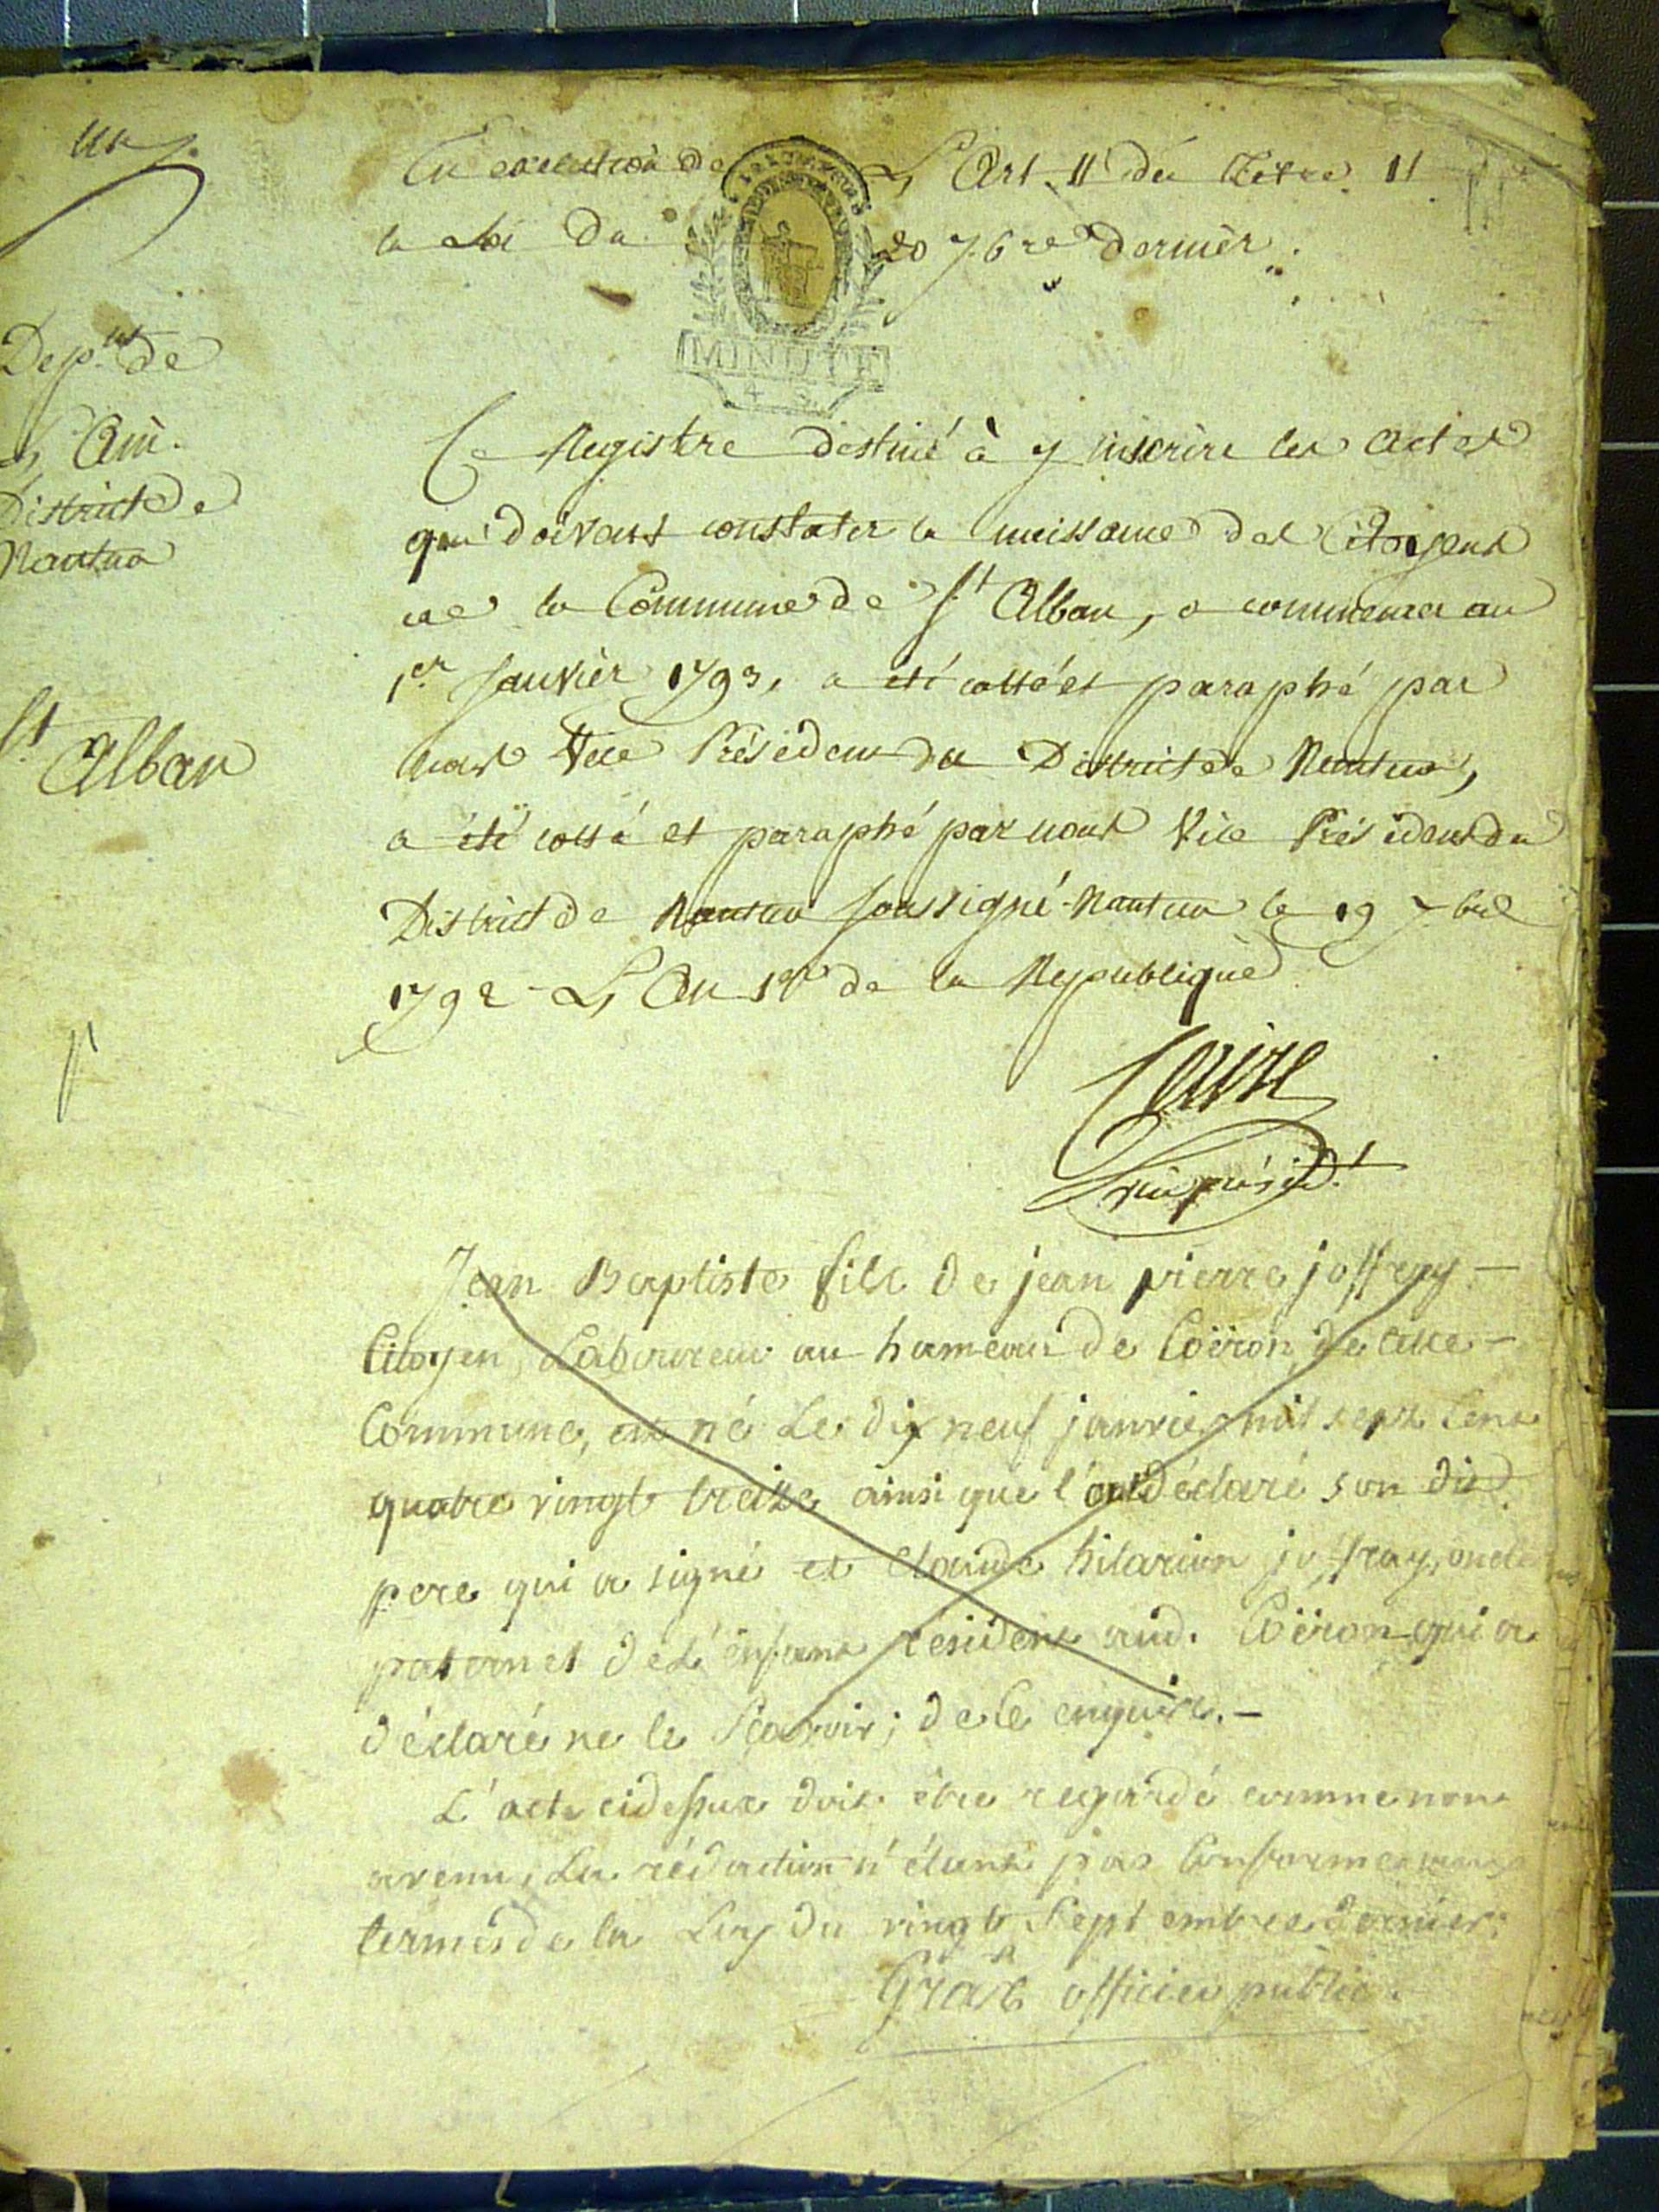 un
En execution de L'Art. II du Titre II
la Loi du 20 7.bre dernier.
MINUTE
Dep.nt de
L'Ain.
District de
Nantua
St Alban
Ce Registre destiné à y inscrire les actes
qui doivent constater la naissance des Citoyens
de la Commune de St Alban, a commencer au
1er Janvier 1793, a été cotté et paraphé par
nous Vice Président du District de Nantua,
a été cotté et paraphé par nous Vice Président du
District de Nantua soussigné. Nantua le 19 bre
1792 - L'An 1er de la Republique
vice présid.t
Jean Baptiste fils de jean pierre joffray -
Citoyen, Laboureur au hameau de Coiron, de cette -
Commune, est né Le dix neuf janvier mil sept cent
quatre vingt treize ainsi que l'ont déclaré son dit
pere qui a signé et Claude hilarion joffray, oncle
paternel de L'enfant résident aud. Coëron qui a
déclaré ne le Scavoir; de ce enquis. -
L'acte cidessus doit être regardé comme non
avenu, La rédaction n'étant pas Conforme aux
termes de la Loy du vingt Septembre dernier.
officier public.